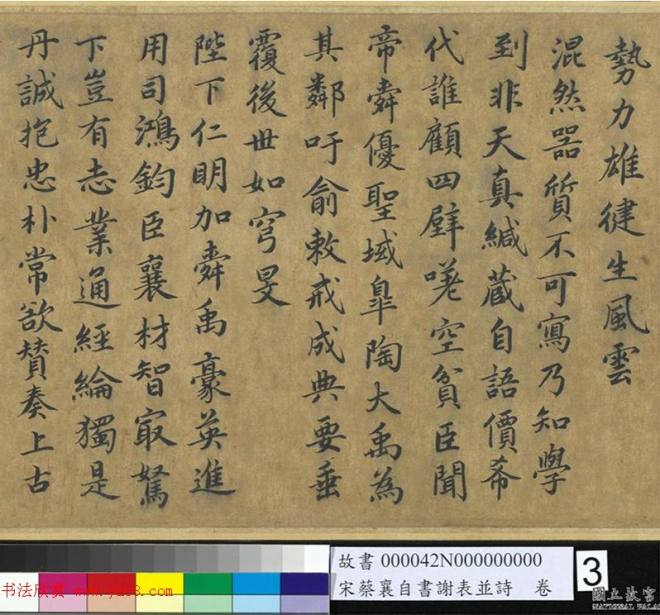 勢力雄健生風雲
混然器質不可寫乃知學
到非天真緘藏自語價
代誰顧四壁嘆空貧臣聞
帝舜優聖域皐陶大禹為
其鄰吁俞敕戒成典要垂
覆後世如穹旻
陛下仁明加舜禹豪英進
用司鴻鈞臣襄材智冣駑
下豈有志業通經綸獨是
丹誠抱忠朴常欲賛奏上古
故書 000042N000000000
宋蔡襄自書謝表並詩 卷
3
書法欣賞
國立故宮
NATIONAL PALA